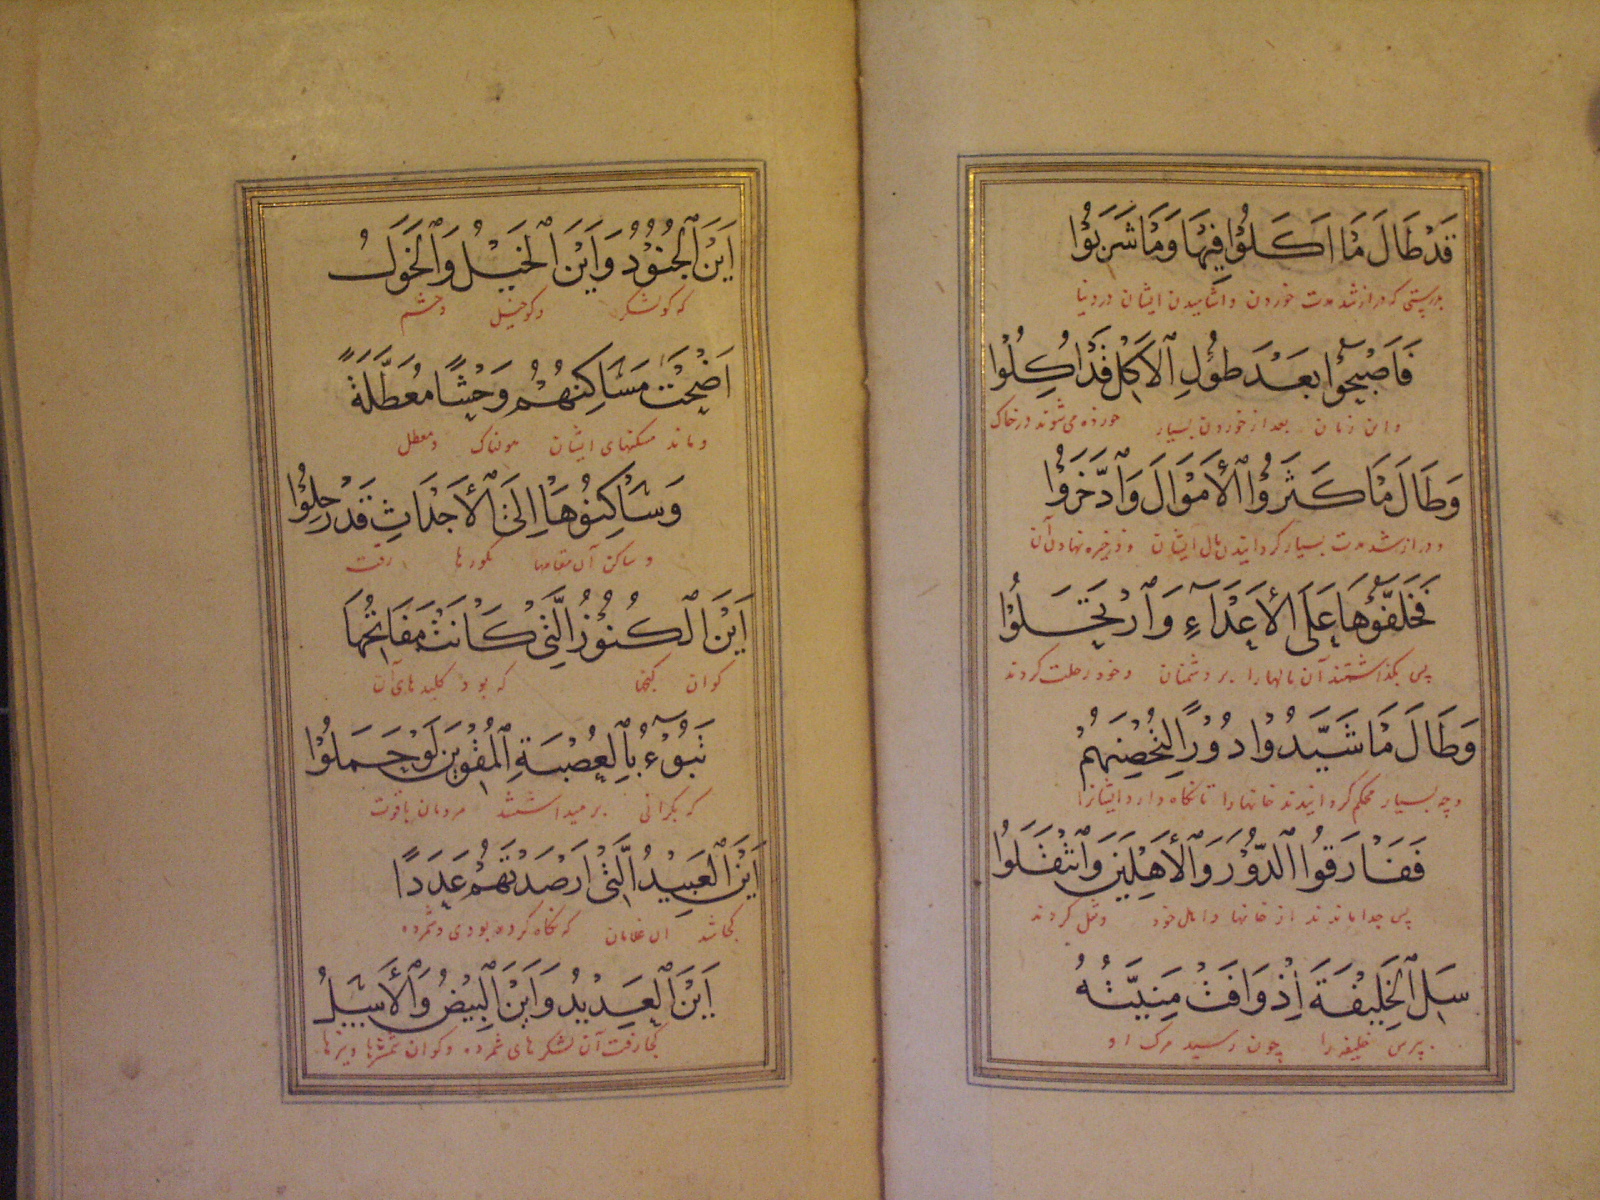 قَدْ طَالَ مَا اَكَلُوْا فِيْهَا وَمَا شَرِبُوْا
بدرستی که دراز شد مدت خوردن و اشامیدن ایشان در دنیا
فَاَصْبَحُوْا بَعْدَ طُوْلِ الْاَكْلِ قَدْ اُكِلُوْا
و این زمان بعد از خوردن بسیار خورده می شوند در خاک
وَطَالَ مَا كَثَرُوا الْاَمْوَالَ وَادَّخَرُوْا
و دراز شد مدت بسیار کردانیدن مال ایشان و ذخیره نهادن آن
فَخَلَّفُوْهَا عَلَى الْاَعْدَاءِ وَارْتَحَلُوْا
پس بگذاشتند آن مالها را بر دشمنان و خود رحلت کردند
وَطَالَ مَا شَيَّدُوْا دُوْرًا لِتُحْصِنَهُمْ
و چه بسیار محکم کردانیدند خانها را تا نگاه دارد ایشانرا
فَفَارَقُوا الدُّوْرَ وَالْاَهْلِيْنَ وَانْتَقَلُوْا
پس جدا ماندند از خانها و اهل خود و نقل کردند
سَلِ الْخَلِيْفَةَ اِذْ وَافَتْ مَنِيَّتُهُ
بپرس خلیفه را چون رسید مرک او
اَيْنَ الْجُنُوْدُ وَاَيْنَ الْخَيْلُ وَالْخَوَلُ
که کو لشکر و کو خیل و حشم
اَضْحَتْ مَسَاكِنُهُمْ وَحْشًا مُعَطَّلَةً
و ماند مسکنهای ایشان هولناک و معطل
وَسَاكِنُوْهَا اِلَى الْاَجْدَاثِ قَدْ رَحَلُوْا
و ساکن آن مقامها بگورها رفت
اَيْنَ الْكُنُوْزُ الَّتِيْ كَانَتْ مَفَاتِحُهَا
کو ان گنجها که بود کلیدهای آن
تَنُوْءُ بِالْعُصْبَةِ الْمُقْوِيْنَ لَوْ حَمَلُوْا
که بگرانی بر میداشتند مردمان باقوت
اَيْنَ الْعَبِيْدُ الَّتِيْ اَرْصَدْتَهُمْ عَدَدًا
کجا شد ان غلامان که نگاه کرده بودی و شمرده
اَيْنَ الْعَدِيْدُ وَاَيْنَ الْبِيْضُ وَالْاَسَلُ
کجا رفت آن لشکرهای شمرده و کو ان شمشیرها و نیزها